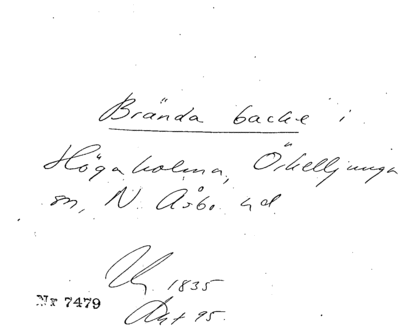 Brända backe i
Högaholma, Örkelljunga
sn, N. Åsbo hd
1835
Nr 7479
Akt 95.